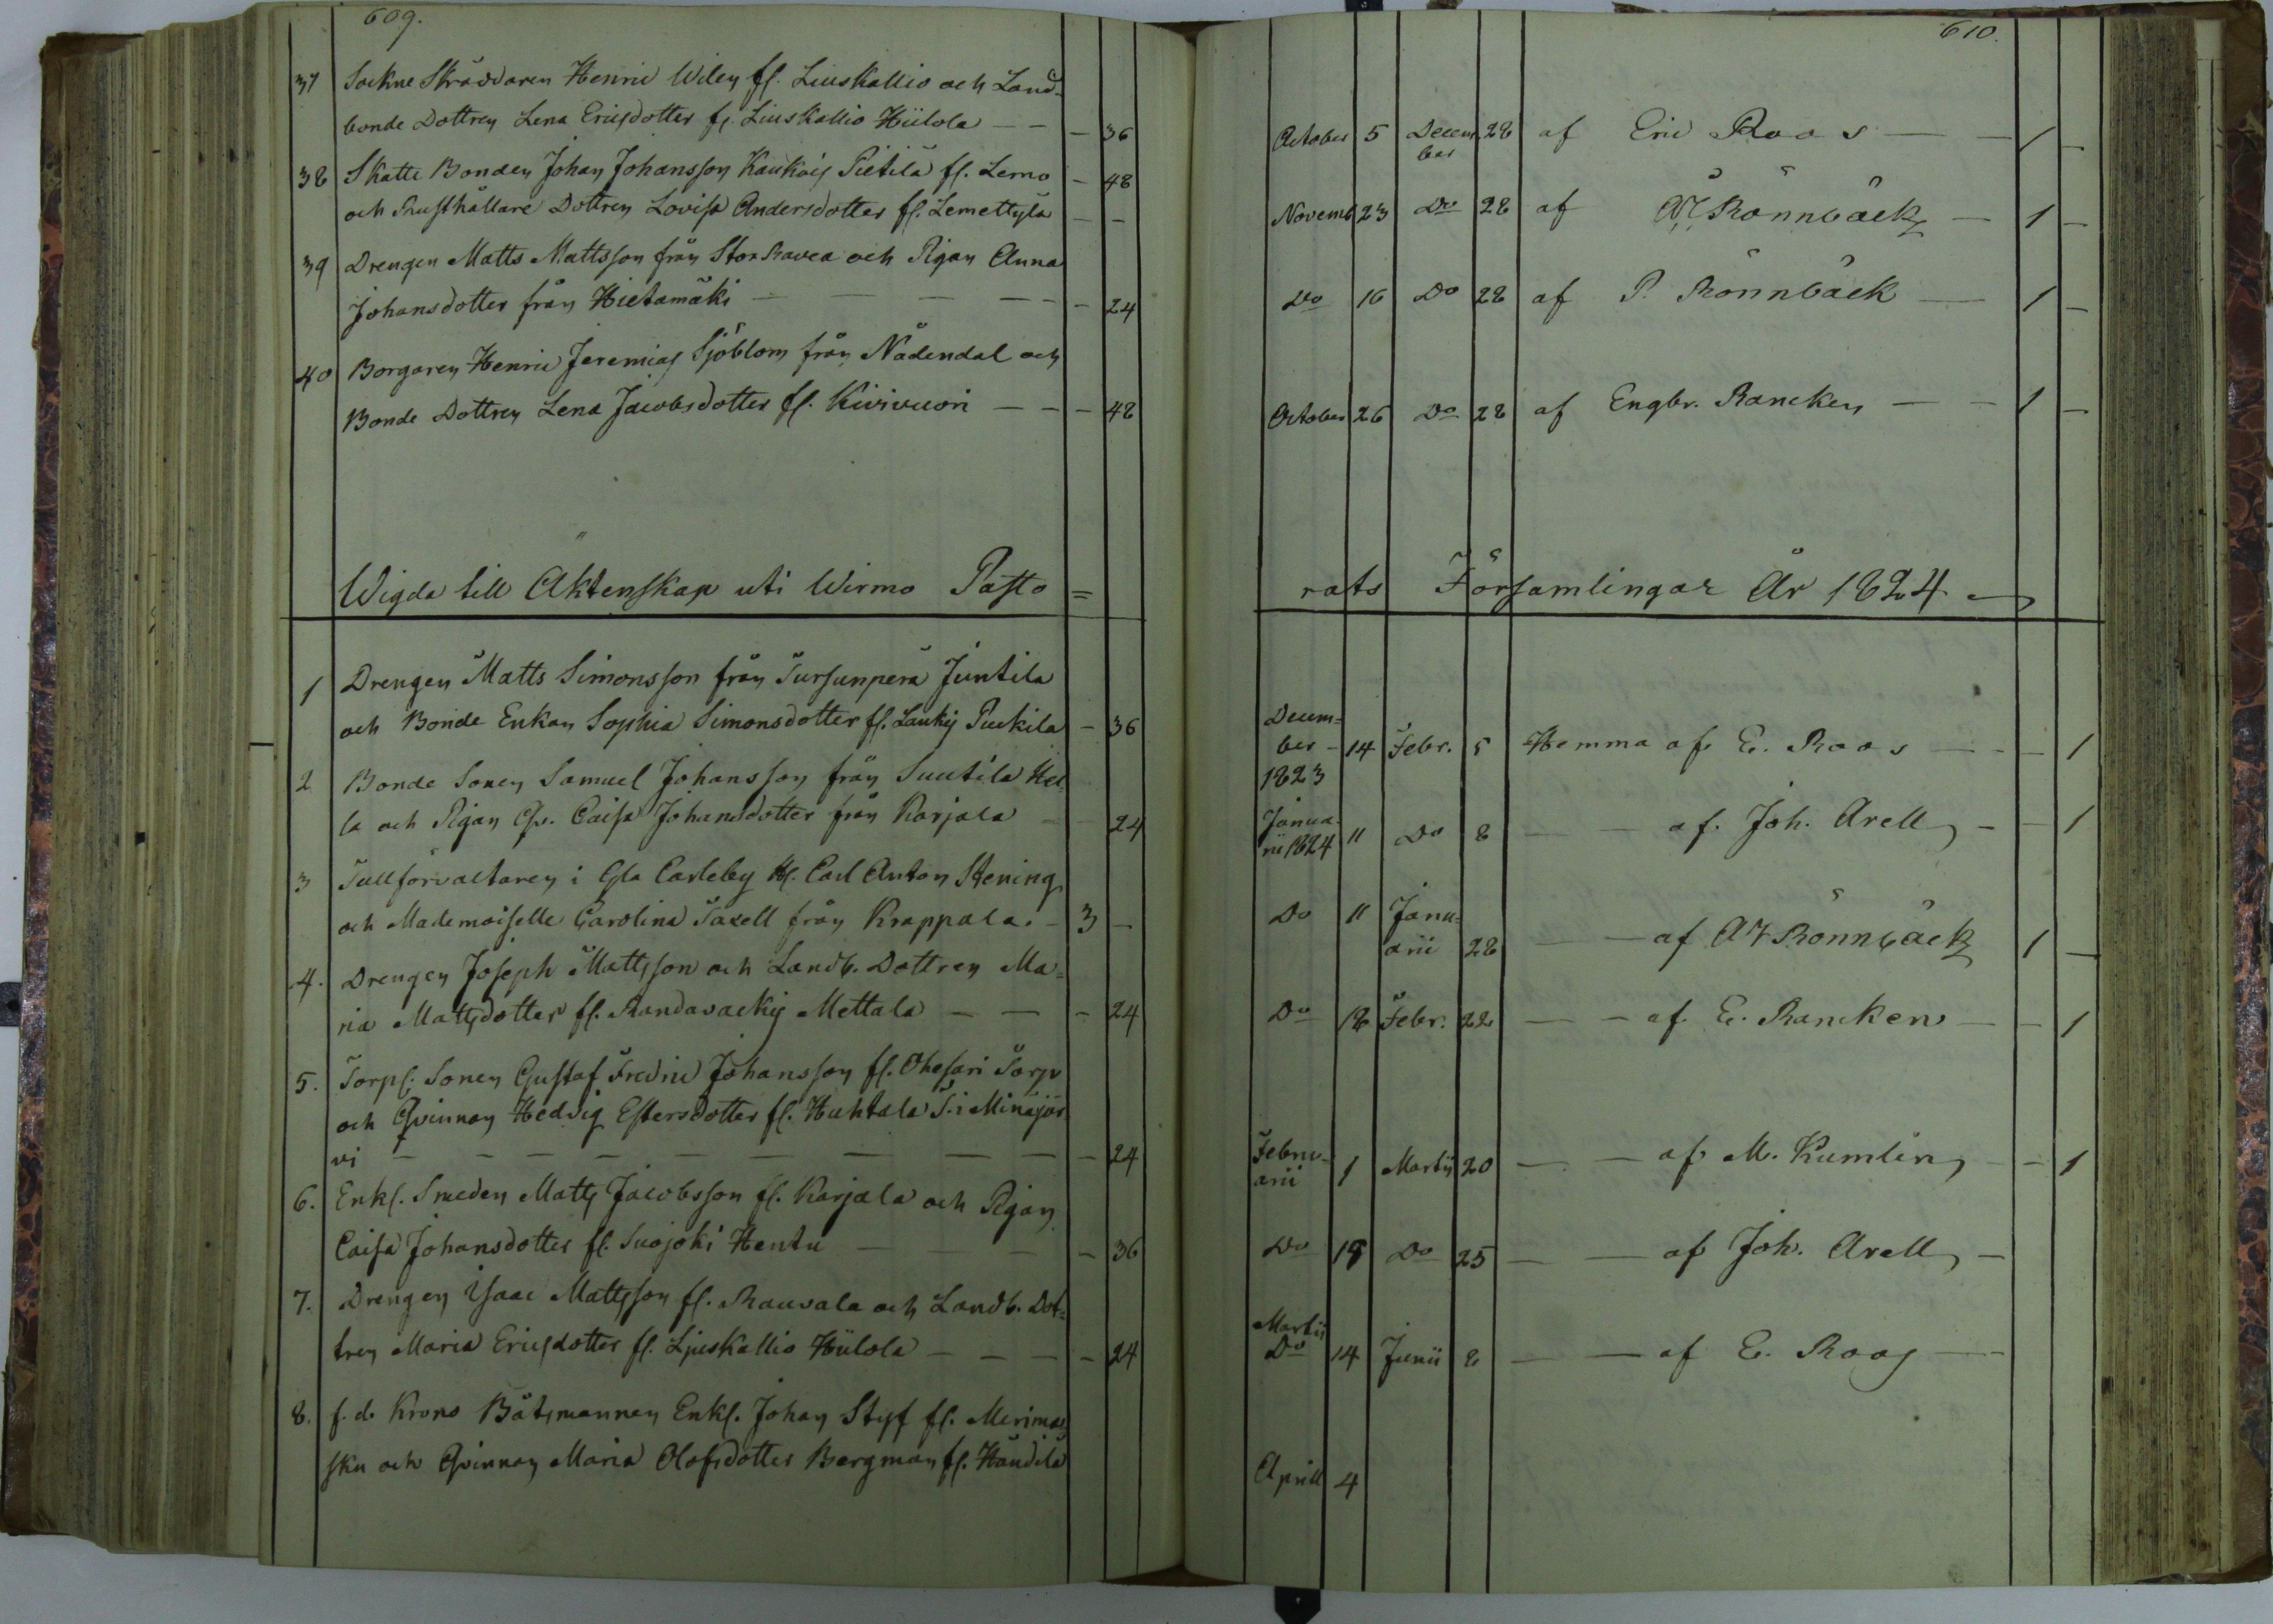 609.
37 Sockne Skräddaren Henric Wilen fl. Liuskallio och Land-
bonde Dottren Lena Ericsdotter fl. Liuskallio Hiilola — — — 36
38 Skatte Bonden Johan Johansson Kaukois Pietilä fl. Lemo — 48
och Rusthållare Dottren Lovisa Andersdotter fl. Lemettylä — —
39 Drengen Matts Mattsson från Stor Ravea och Pigan Anna
Johansdotter från Hietamäki — — — — — 24
40 Borgaren Henric Jeremias Sjöblom från Nådendal och
Bonde Dottren Lena Jacobsdotter fl. Kivivuori — — — 48
Wigda till Äktenskap uti Wirmo Pasto =
1 Drengen Matts Simonsson från Tursunperä Juntila
och Bonde Enkan Sophia Simonsdotter fl. Laukis Puckila — 36
2 Bonde Sonen Samuel Johansson från Suutila Hei
la och Pigan Qv. Caisa Johansdotter från Karjala — — 24
3 Tullförvaltaren i Gla Carleby H. Carl Anton Stening
och Mademoiselle Carolina Taxell från Krappala. — 3 —
4. Drengen Joseph Mattsson och Landb. Dottren Ma=
ria Mattsdotter fl. Randavackis Mettala — — — 24
5. Torpl. Sonen Gustaf Fredric Johansson fl. Ohesari Torp
och Qvinnan Hedvig Estersdotter fl. Huhtala S. i Minäjär
vi — — — — — — — — — 24
6. Enkl. Smeden Matts Jacobsson fl. Karjala och Pigan
Caisa Johansdotter fl. Suojoki Hentu — — — — 36
7. Drengen Isaac Mattsson fl. Rauvala och Landb. Dot=
tren Maria Ericsdotter fl. Ljuskallio Hiilola — — — — 24
8. f. d. Krono Båtsmannen Enkl. Johan Styf fl. Merimas
sku och Qvinnan Maria Olofsdotter Bergman fl. Händilä
610.
October 5 Decem
ber 28 af Eric Roos — — 1 —
Novemb 23 Do 28 af Rönnbäck — 1 —
Do 16 Do 28 af P. Rönnbäck — 1 —
October 26 Do 28 af Engbr. Rancken — — 1 —
rats Församlingar År 1824 —
Decem=
ber — 14 Febr. 5 Hemma af E. Roos — — — 1
1823
Janua
rii 1824 11 Do 8 — — af. Joh. Arell — — 1
Do 11 Janu-
arii 28 — — af Rönnbäck 1 —
Do 18 Febr. 22 — — af E. Rancken — — 1
Febru-
arii 1 Martii 20 — — af M. Kumlin — 1
Do 15 Do 25 — — af Joh. Arell —
Martii
Do 14 Junii 8 — — af E. Roos —
Aprill 4